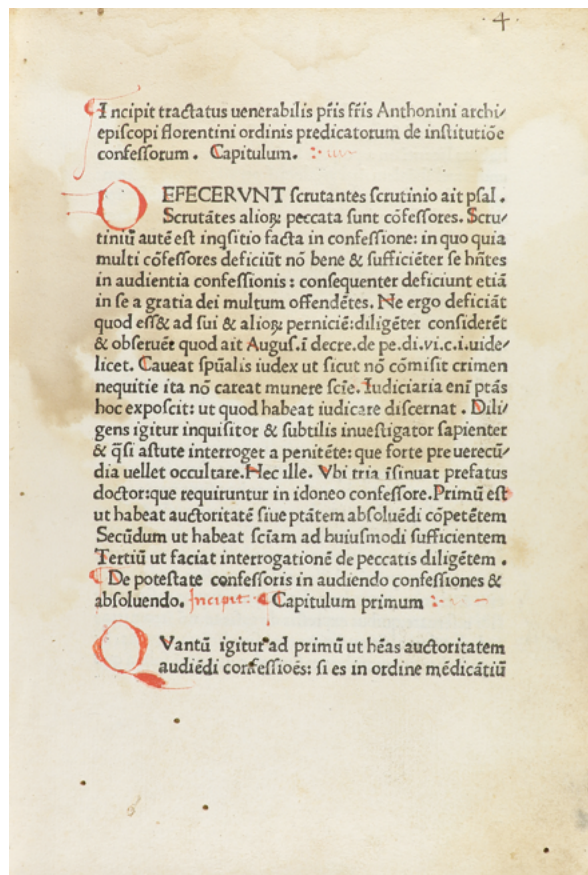 4
Incipit tractatus uenerabilis p̃ris fr̃is Anthonini archi/
episcopi florentini ordinis predicatorum de institutiõe
confessorum . Capitulum .
DEFECERVNT scrutantes scrutinio ait psal .
Scrutãtes alioꝝ peccata sunt cõfessores. Scru/
tiniũ autẽ est inq̃sitio facta in confessione: in quo quia
multi cõfessores deficiũt nõ bene & sufficiẽter se hñtes
in audientia confessionis : consequenter deficiunt etiã
in se a gratia dei multum offendẽtes. Ne ergo deficiãt
quod ess& ad sui & alioꝝ perniciẽ: diligẽter considerẽt
& obseruẽt quod ait Augus. ĩ decre. de pe. di. vi. c. i. uide/
licet. Caueat sp̃ualis iudex ut sicut nõ cõmisit crimen
nequitie ita nõ careat munere scĩe. Iudiciaria enĩ ptãs
hoc exposcit: ut quod habeat iudicare discernat . Dili/
gens igitur inquisitor & subtilis inuestigator sapienter
& q̃si astute interroget a penitẽte: que forte pre uerecũ/
dia uellet occultare. Hec ille. Vbi tria ĩsinuat prefatus
doctor: que requiruntur in idoneo confessore. Primũ est
ut habeat auctoritatẽ siue ptãtem absoluẽdi cõpetẽtem
Secũdum ut habeat scĩam ad huiusmodi sufficientem
Tertiũ ut faciat interrogationẽ de peccatis diligẽtem .
¶ De potestate confessoris in audiendo confessiones &
absoluendo. Incipit: ¶ Capitulum primum
QVantũ igitur ad primũ ut hẽas auctoritatem
audiẽdi confessiões: si es in ordine mẽdicãtiũ